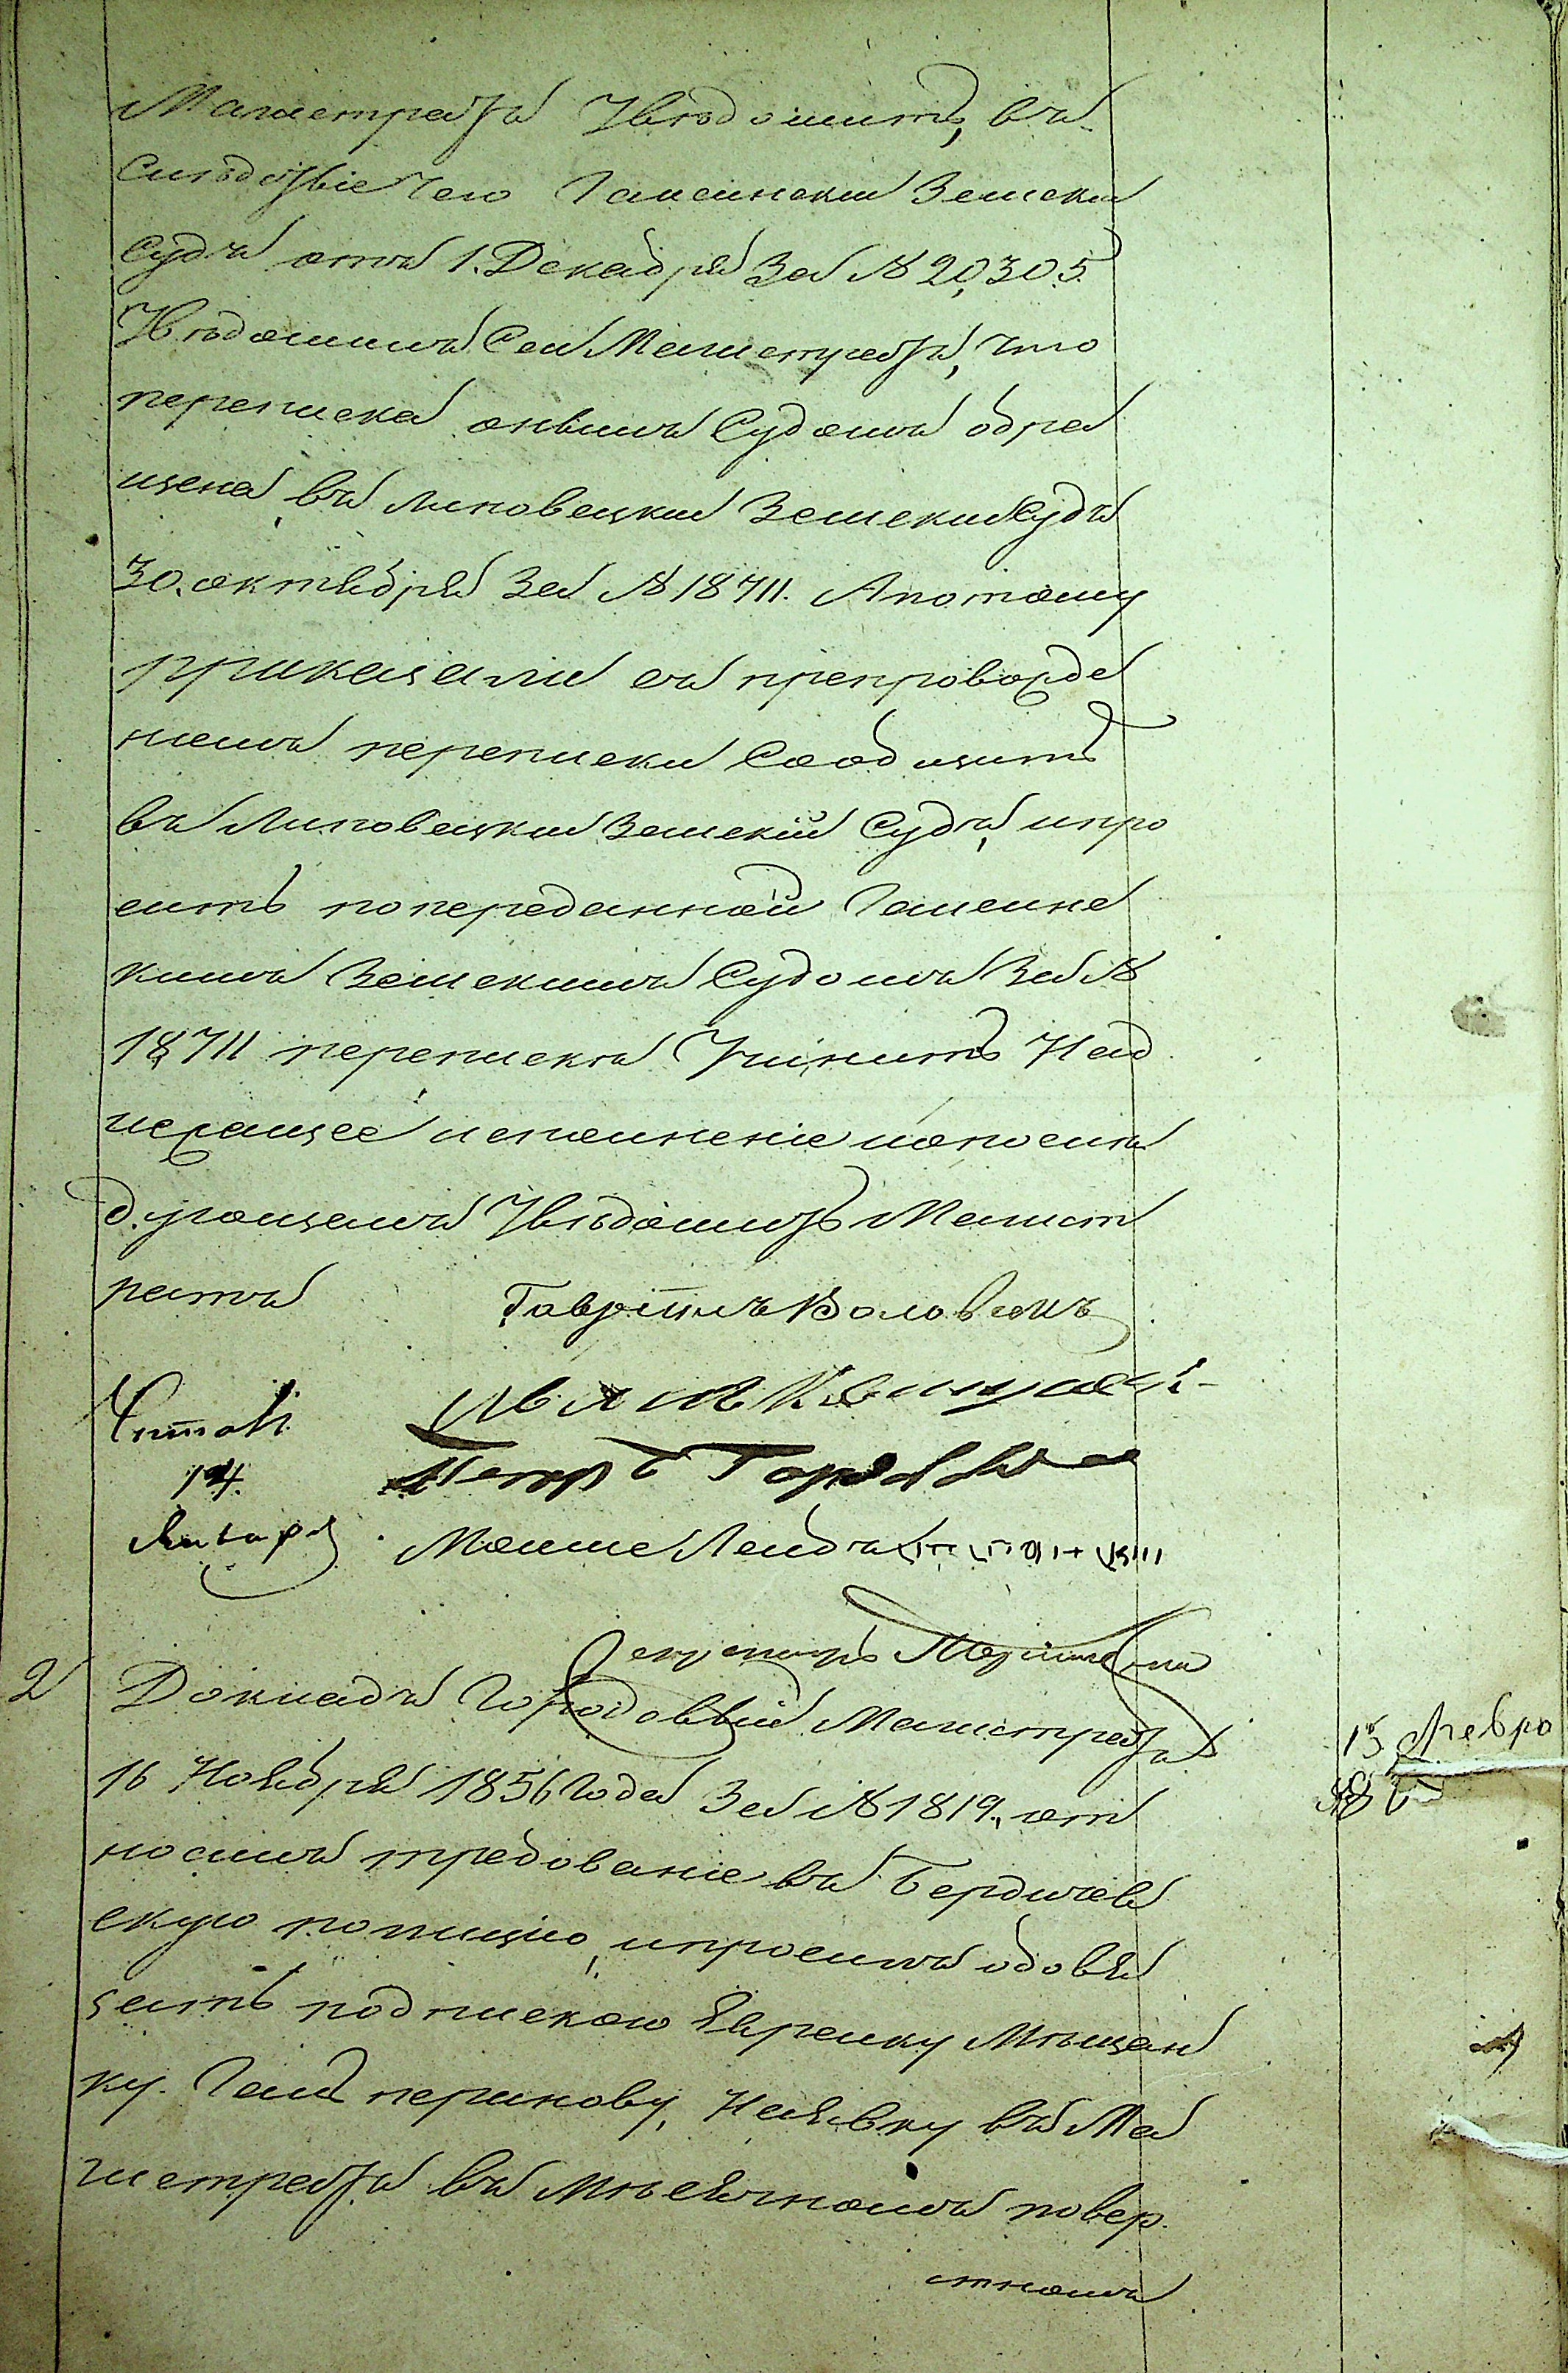 Магистратъ Увѣдомить, въ
Слѣдствіе чего Гайсинскій Земскій
Судъ отъ 1. Декабря За № 20,305.
Увѣдомилъ Сей Магистратъ, что
переписка онымъ Судомъ обра
щена, въ Липовецкій Земскій Судъ
30. октября За № 18711. А потому
приказали съ препровожде
ніемъ переписки Сообщить
въ Липовецкій Земскій Судъ, и про
сить по переданной Гайсинс
кимъ Земскимъ Судомъ За №
18711 перепискѣ Учинить Над
лежащее исполненіе и о послѣ
дующемъ Увѣдомить Магист
ратъ
Гаврiилъ
Иванъ
Петръ
Читалъ
14.
Января
Мошне Лейбъ
Секретарь
2 Докладъ Городовый Магистратъ
16 Ноября 1856 Года За № 1819, от
носимъ требованіе въ Бердичев
скую полицію, и просилъ обовя
зать подпискою Еврейку Мѣщан
ку. Перлинову, На явку въ Ма
гистратъ въ Мѣсячномъ повер
стномъ
15 Февра